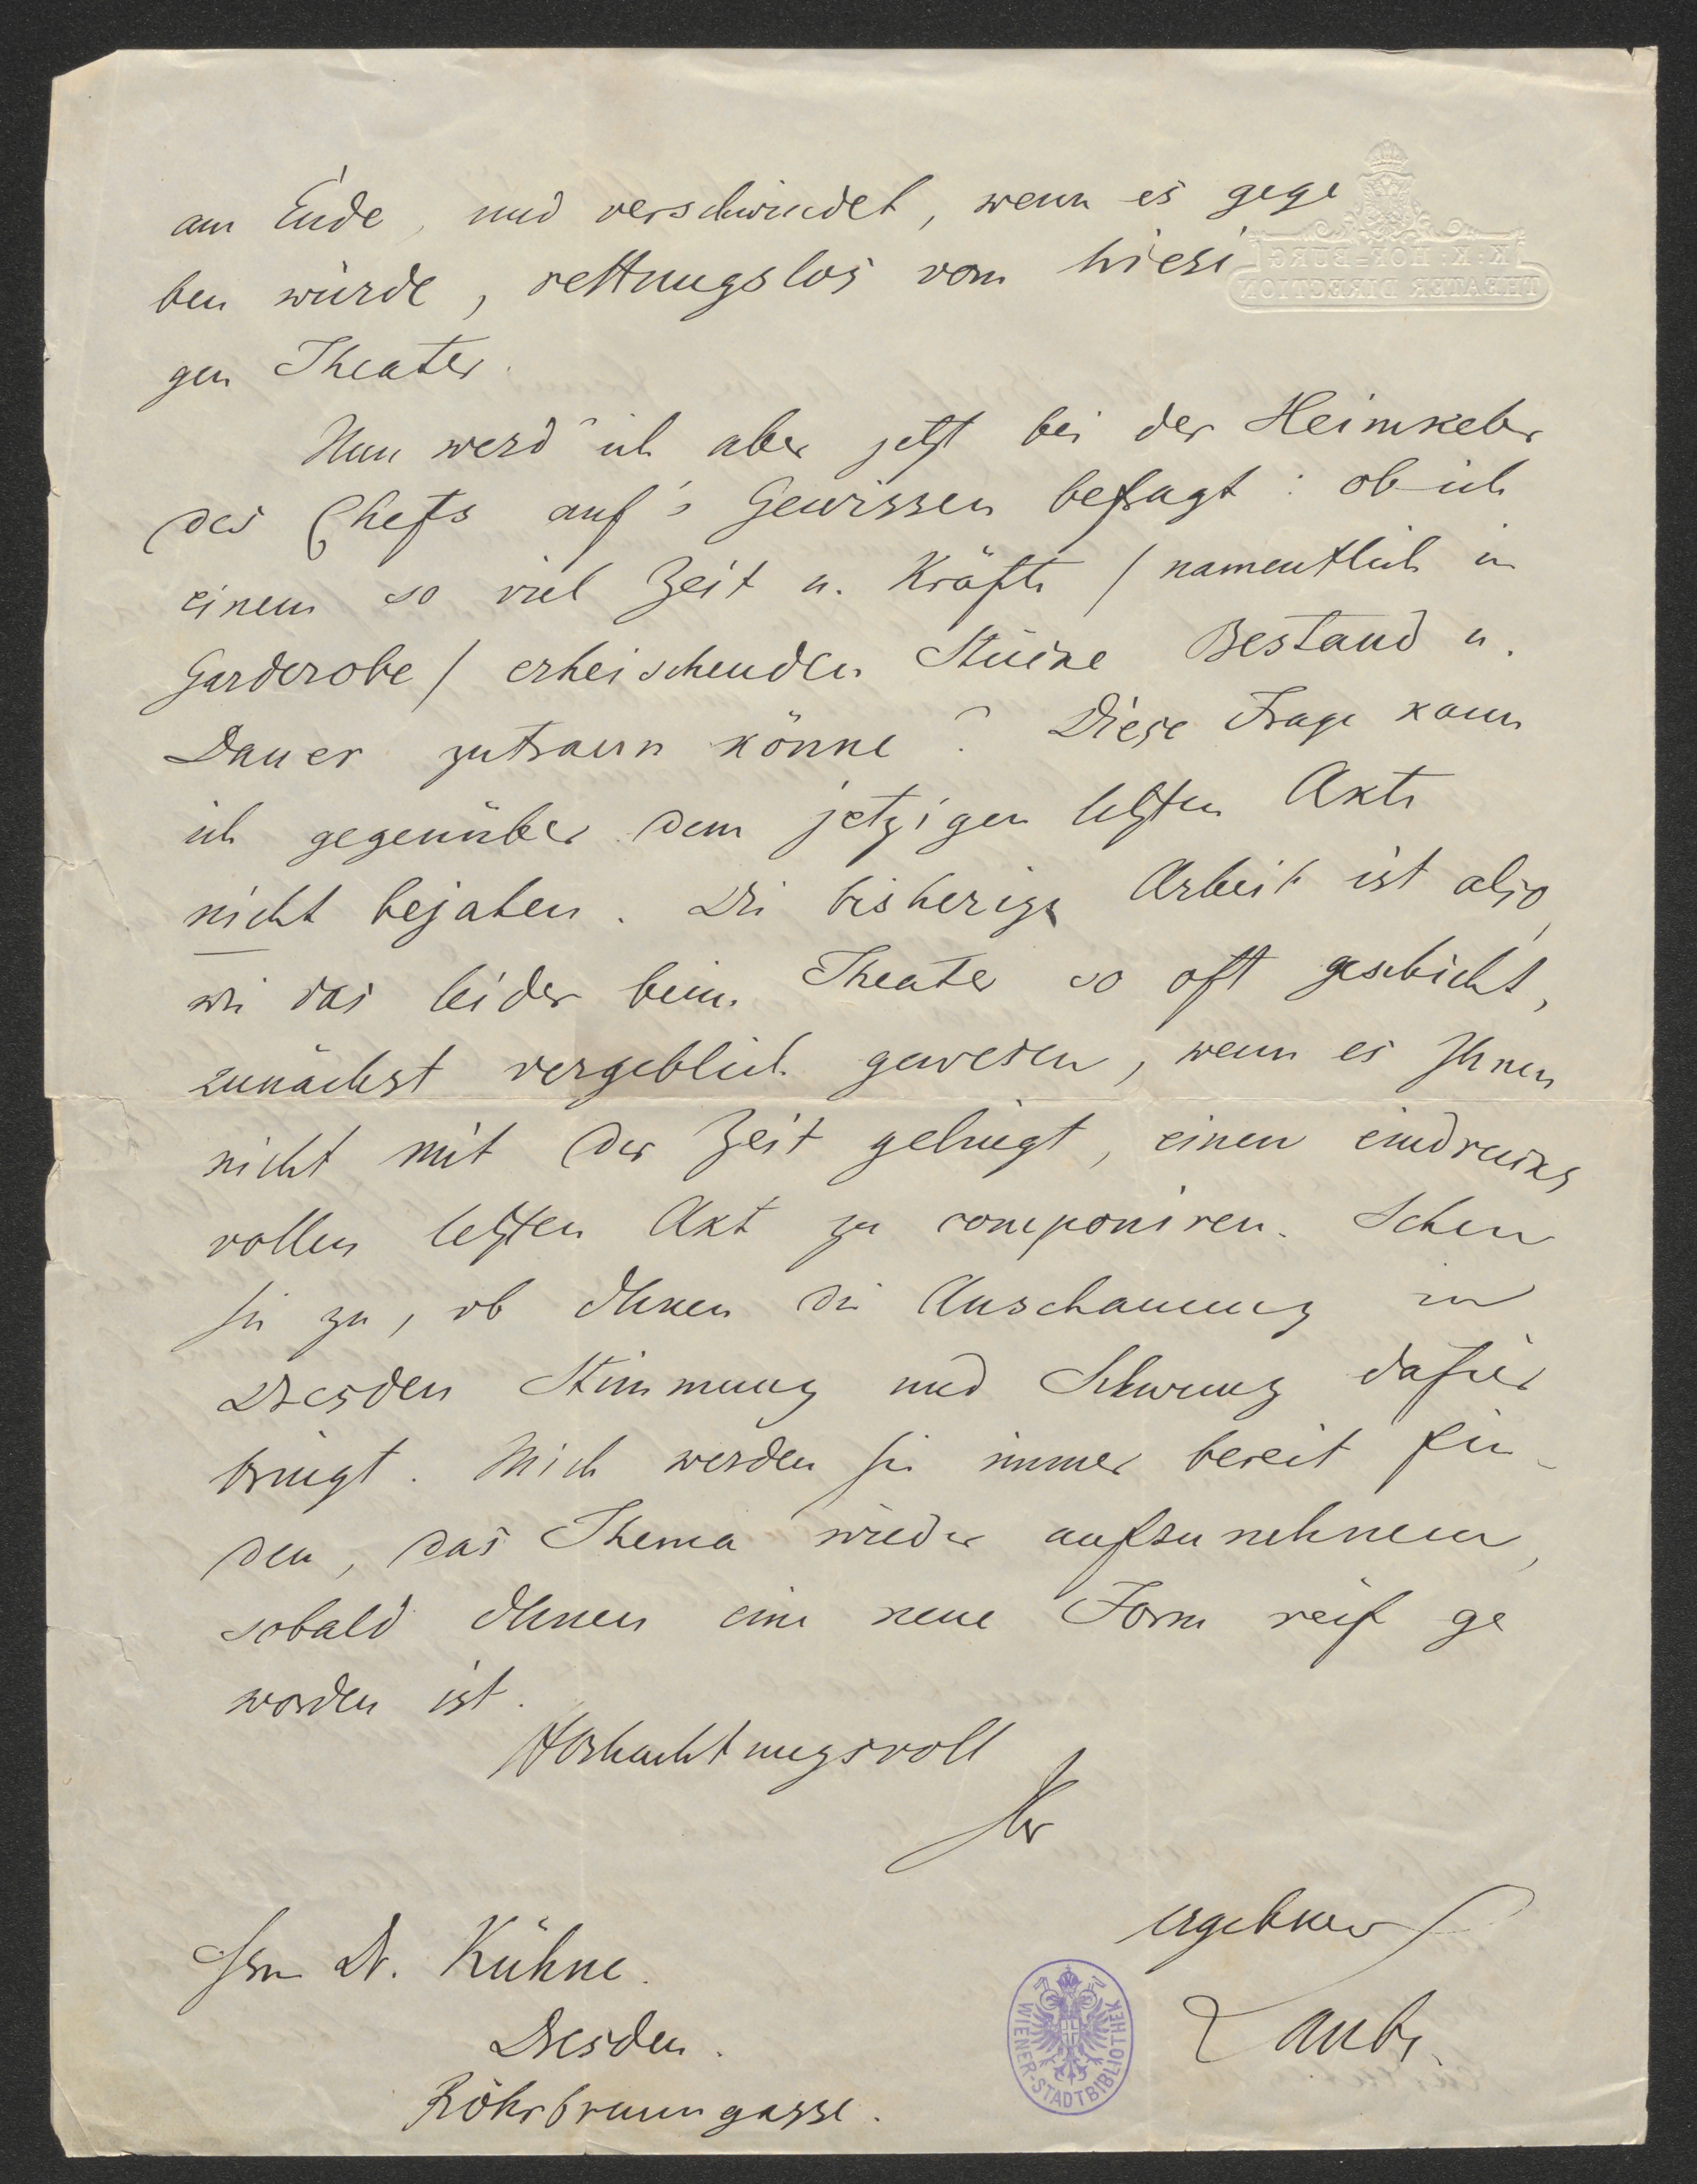 am Ende, und verschwindet, wenn es gege
ben würde, rettungslos vom hiesi
gen Theater.
Nun werd' ich aber jetzt bei der Heimkehr
des Chefs auf's Gewissen befragt: ob ich
einem so viel Zeit u. Kräfte / namentlich in
Garderobe / erheischenden Stücke Bestand u.
Dauer zutrauen könne? Diese Frage kann
ich gegenüber dem jetzigen letzten Akte
nicht bejahen. Die bisherige Arbeit ist also,
wie das leider beim Theater so oft geschieht,
zunächst vergeblich gewesen, wenn es Ihnen
nicht mit der Zeit gelingt, einen eindrucks
vollen letzten Akt zu componiren. Sehen
Sie zu, ob Ihnen die Anschauung in
Dresden Stimmung und Schwung dafür
bringt. Mich werden Sie immer bereit fin-
den, das Thema wieder aufzunehmen,
sobald Ihnen eine neue Form reif ge
worden ist.
Hochachtungsvoll
Ihr
ergebner
Laube.
Hrn Dr. Kühne.
Dresden.
Röhrbrunngasse.
K: K: HOF-BURG
THEATER DIRECTION
WIENER-STADTBIBLIOTHEK